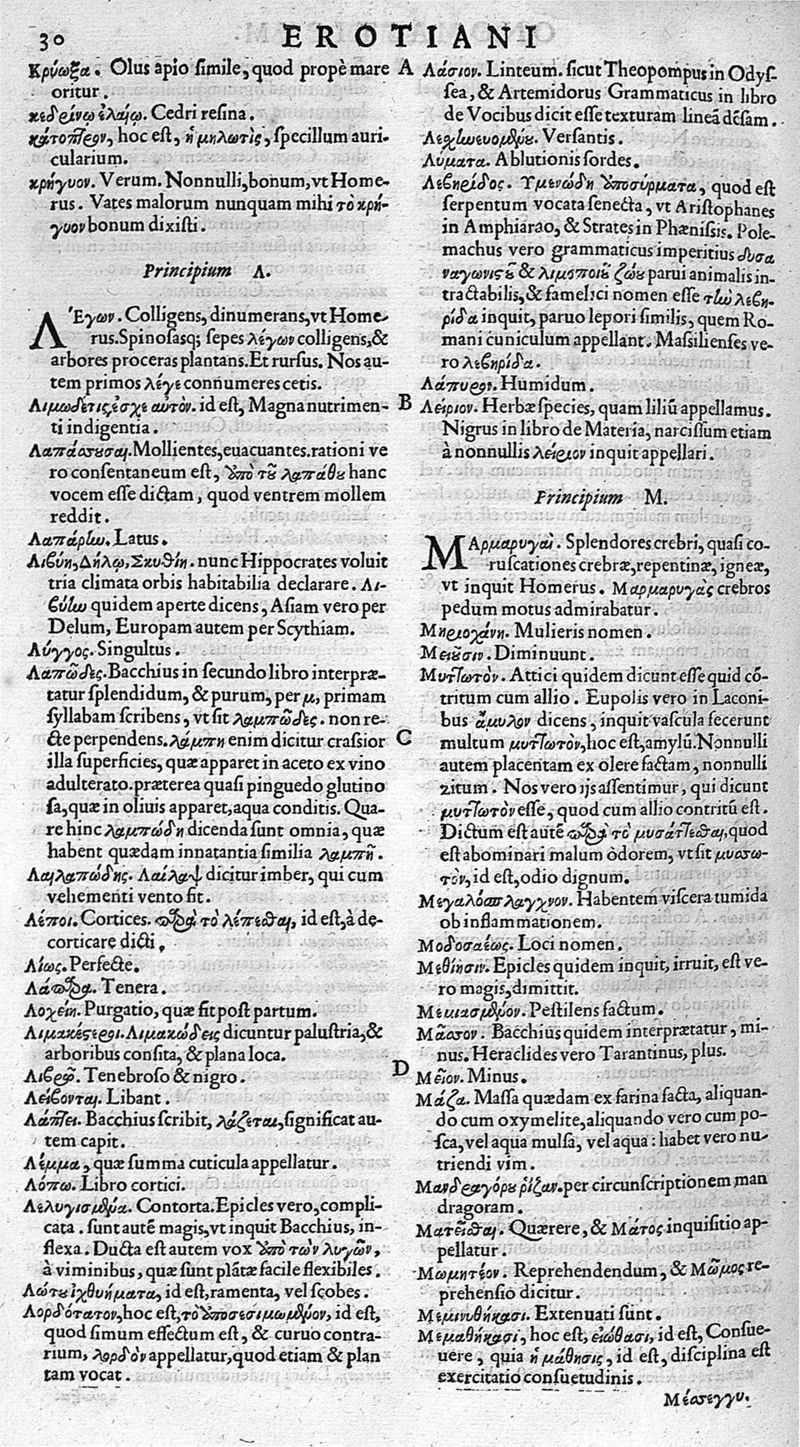 30 EROTIANI
Κρύωξα. Olus apio simile, quod propè mare
oritur.
κεδρίνῳ ἐλαίῳ. Cedri resina.
κάτοπτρον, hoc est, ἡ μηλωτὶς, specillum auri-
cularium.
κρήγυον. Verum. Nonnulli, bonum, vt Home-
rus. Vates malorum nunquam mihi τὸ κρή-
γυον bonum dixisti.
Principium Λ.
ΛΈγων. Colligens, dinumerans, vt Home-
rus. Spinosasq; sepes λέγων colligens, &
arbores proceras plantans. Et rursus. Nos au-
tem primos λέγε connumeres cetis.
Λιμώδετις ἔσχε αὐτόν. id est, Magna nutrimen-
ti indigentia.
Λαπάσσουσαι. Mollientes, euacuantes. rationi ve
ro consentaneum est, ὑπὸ τοῦ λαπάθου hanc
vocem esse dictam, quod ventrem mollem
reddit.
Λαπάρῳ. Latus.
Λιβύῃ, Δήλῳ, Σκυθίῃ. nunc Hippocrates voluit
tria climata orbis habitabilia declarare. Λι-
βύῳ quidem aperte dicens, Asiam vero per
Delum, Europam autem per Scythiam.
Λύγγος. Singultus.
Λαπῶδες. Bacchius in secundo libro interpræ-
tatur splendidum, & purum, per μ, primam
syllabam scribens, vt sit λαμπῶδες. non re-
cte perpendens. λάμπη enim dicitur crassior
illa superficies, quæ apparet in aceto ex vino
adulterato. præterea quasi pinguedo glutino
sa, quæ in oliuis apparet, aqua conditis. Qua-
re hinc λαμπώδη dicenda sunt omnia, quæ
habent quædam innatantia similia λαμπῆ.
Λαιλαπώδης. Λαίλαψ dicitur imber, qui cum
vehementi vento fit.
Λέποι. Cortices. παρὰ τὸ λέπεσθαι, id est, à de-
corticare dicti.
Λίως. Perfecte.
Λάπαρα. Tenera.
Λοχείη. Purgatio, quæ fit post partum.
Λιμακέστεροι. Λιμακώδεις dicuntur palustria, &
arboribus consita, & plana loca.
Λιβρῷ. Tenebroso & nigro.
Λείβονται. Libant.
Λάπτει. Bacchius scribit, λάζεται, significat au-
tem capit.
Λέμμα, quæ summa cuticula appellatur.
Λόπῳ. Libro cortici.
Λελυγισμένα. Contorta. Epicles vero, compli-
cata. sunt autē magis, vt inquit Bacchius, in-
flexa. Ducta est autem vox ὑπὸ τῶν λυγῶν,
à viminibus, quæ sunt plātæ facile flexibiles.
Λωτοῦ ἐχθυήματα, id est, ramenta, vel scobes.
Λορδότατον, hoc est, τὸ ὑποσεσιμωμένον, id est,
quod simum effectum est, & curuo contra-
rium, λορδὸν appellatur, quod etiam & plan
tam vocat.
A Λάσιον. Linteum. sicut Theopompus in Odys-
sea, & Artemidorus Grammaticus in libro
de Vocibus dicit esse texturam lineā dēsam.
Λεχωευομένου. Versantis.
Λύματα. Ablutionis sordes.
Λεβηρίδος. Υμενώδη ὑποσύρματα, quod est
serpentum vocata senecta, vt Aristophanes
in Amphiarao, & Strates in Phænissis. Pole-
machus vero grammaticus imperitius δυσα
ναγωνιστοῦ & λιμοποιοῦ ζώου parui animalis in-
tractabilis, & famelici nomen esse τὼ λεβη-
ρίδα inquit, paruo lepori similis, quem Ro-
mani cuniculum appellant. Massilienses ve-
ro λεβηρίδα.
Λάπυροι. Humidum.
B Λείριον. Herbæ species, quam liliū appellamus.
Nigrus in libro de Materia, narcissum etiam
à nonnullis λείριον inquit appellari.
Principium M.
ΜΑρμαρυγαὶ. Splendores crebri, quasi co-
ruscationes crebræ, repentinæ, igneæ,
vt inquit Homerus. Μαρμαρυγὰς crebros
pedum motus admirabatur.
Μηριοχάνη. Mulieris nomen.
Μειοῦσιν. Diminuunt.
Μυττωτὸν. Attici quidem dicunt esse quid cō-
tritum cum allio. Eupolis vero in Laconi-
bus ἄμυλον dicens, inquit vascula fecerunt
C multum μυττωτὸν, hoc est, amylū. Nonnulli
autem placentam ex olere factam, nonnulli
zitum. Nos vero ijs assentimur, qui dicunt
μυττωτὸν esse, quod cum allio contritū est.
Dictum est autē παρὰ τὸ μυσάττεσθαι, quod
est abominari malum òdorem, vt sit μυσω-
τὸν, id est, odio dignum.
Μεγαλόσπλαγχνον. Habentem viscera tumida
ob inflammationem.
Μοδοσαέως. Loci nomen.
Μεθίησιν. Epicles quidem inquit, irruit, est ve-
ro magis, dimittit.
Μεμιασμένον. Pestilens factum.
Μᾶσσον. Bacchius quidem interprætatur, mi-
nus. Heraclides vero Tarantinus, plus.
D Μεῖον. Minus.
Μάζα. Massa quædam ex farina facta, aliquan-
do cum oxymelite, aliquando vero cum po-
sca, vel aqua mulsa, vel aqua: habet vero nu-
triendi vim.
Μανδραγόρου ῥίζαν. per circunscriptionem man
dragoram.
Ματεῖσθαι. Quærere, & Μάτος inquisitio ap-
pellatur.
Μωμητέον. Reprehendendum, & Μῶμος re-
prehensio dicitur.
Μεμινυθήκασι. Extenuati sunt.
Μεμαθήκασι, hoc est, εἰώθασι, id est, Consue-
uere, quia ἡ μάθησις, id est, disciplina est
exercitatio consuetudinis.
Μέσσεγγυ.